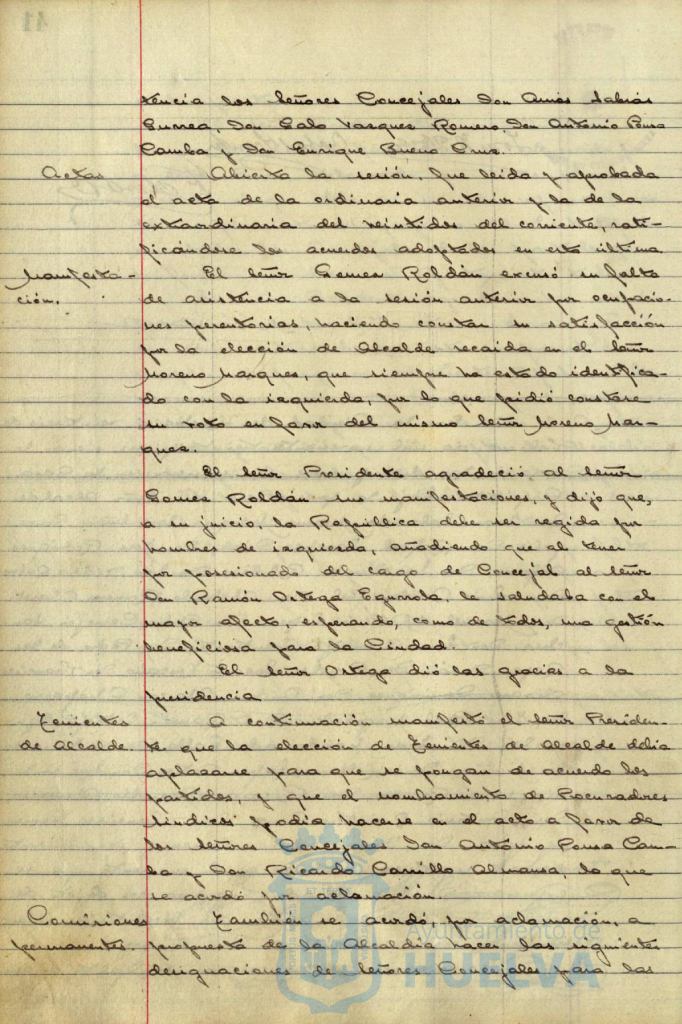 tencia los Señores Concejales Don Amós Sabrás
Gurrea, Don Galo Vazquez Romero, Don Antonio Pousa
Camba y Don Enrique Bueno Cruz.
Actas Abierta la sesión, fue leida y aprobada
el acta de la ordinaria anterior y la de la
extraordinaria del veintidos del corriente, rati-
ficándose los acuerdos adoptados en esta última.
Manifesta- El Señor Gomez Roldán excusó su falta
ción. de asistencia a la sesión anterior por ocupacio-
nes perentorias, haciendo constar su satisfacción
por la elección de Alcalde recaida en el Señor
Moreno Marquez, que siempre ha estado identifica-
do con la izquierda, por lo que pidió constase
su voto en favor del mismo Señor Moreno Mar-
quez.
El Señor Presidente agradeció al Señor
Gomez Roldán sus manifestaciones, y dijo que,
a su juicio, la República debe ser regida por
hombres de izquierda, añadiendo que al tener
por posesionado del cargo de Concejal al Señor
Don Ramón Ortega Egurrola, le saludaba con el
mayor afecto, esperando, como de todos, una gestión
beneficiosa para la Ciudad.
El Señor Ortega dió las gracias a la
presidencia
Tenientes A continuación manifestó el Señor Presiden-
de Alcalde. te que la elección de Tenientes de Alcalde debia
aplazarse para que se pongan de acuerdo los
partidos, y que el nombramiento de Procuradores
Sindicos podia hacerse en el acto a favor de
los Señores Concejales Don António Pousa Cam-
ba y Don Ricardo Carrillo Almansa, lo que
se acordó por aclamación.
Comisiones También se acordó, por aclamación, a
permanentes. propuesta de la Alcaldia hacer las siguientes
designaciones de Señores Concejales para las
Ayuntamiento de
HUELVA
41